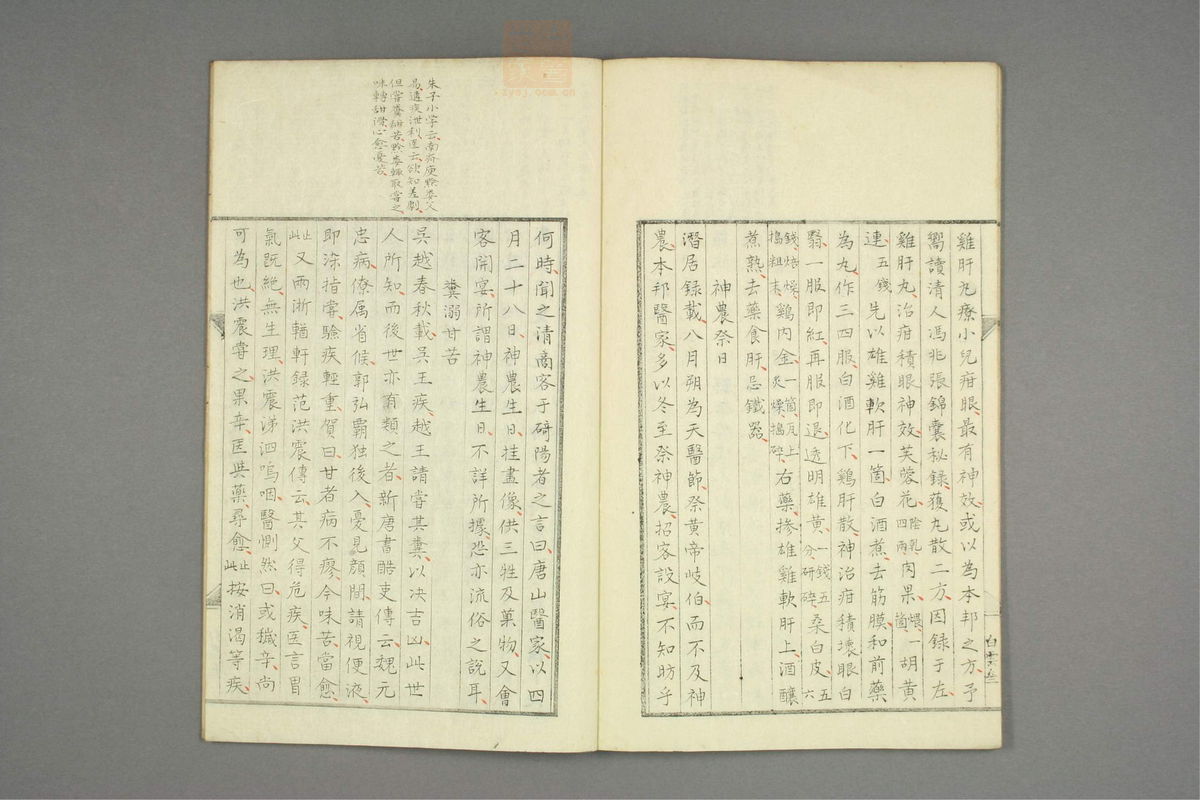 雞肝丸療小兒疳眼最有神效或以為本邦之方予
嚮讀清人馮兆張錦囊秘錄獲丸散二方因録于左
雞肝丸治疳積眼神效芙蓉花陰乾四兩肉果煨一箇胡黄
連五錢先以雄雞軟肝一箇白酒煮去筋膜和前藥
為丸作三四服白酒化下鷄肝散神治疳積壞眼白
翳一服即紅再服即退透明雄黄一錢五分研碎桑白皮五六
錢焙燥搗粗末鷄内金一箇瓦上炙燥搗碎右藥摻雄雞軟肝上酒釀
煮熟去藥食肝忌鐵器
神農祭日
潛居録載八月朔為天醫節祭黄帝岐伯而不及神
農本邦醫家多以冬至祭神農招客設宴不知昉乎
白雲
何時聞之清商客于碕陽者之言曰唐山醫家以四
月二十八日神農生日挂畫像供三牲及菓物又會
客開宴所謂神農生日不詳所據恐亦流俗之說耳
糞溺甘苦
吳越春秋載吳王疾越王請嘗其糞以决吉凶此世
人所知而後世亦有類之者新唐書酷吏傳云魏元
忠病僚属省候郭弘霸独後入憂見顔間請視便液
即染指嘗驗疾輕重賀曰甘者病不瘳今味苦當愈
止此又兩淅輶軒録范洪震傳云其父得危疾医言胃
氣既絶無生理洪震涕泗嗚咽醫惻然曰或穢辛尚
可為也洪震嘗之果辛医與藥尋愈止此按消渴等疾
朱子小学云南齊庾黔婁父
易遘疾泄利医云欲知差劇
但嘗糞甜苦黔婁輒取嘗之
味轉甜滑心愈憂苦